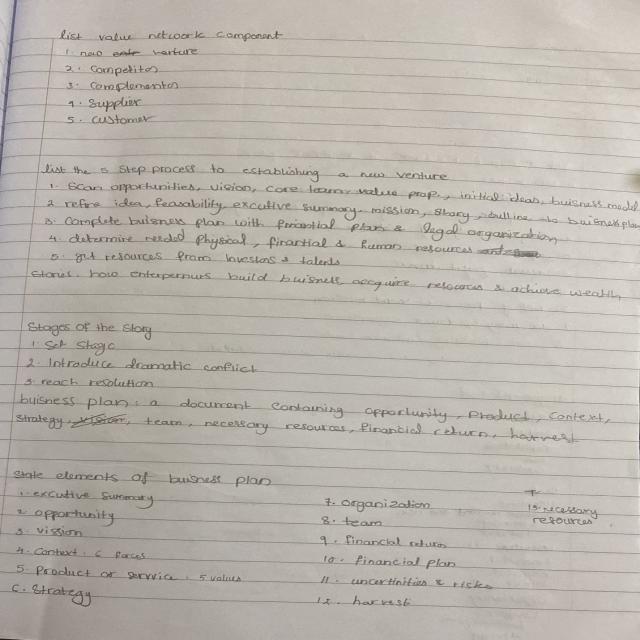 list value network component
1. new venture
2. Competitor
3. Complementor
4. Supplier
5. Customer
list the 5 step process to establishing a new venture
1. Scan opportunities, vision, core team value prop, initial ideas, buisness model
2 refine idea, feasability, excutive summary, mission, story, outline to buisness plan
3. Complete buisness plan with financial plan & legal organization
4. determine needed physical, finantial & human resources
5. get resources from investors & talents
Stories: how enterpernurs build buisness, acquire resources & achieve wealth
Stages of the story
1. Set Stage
2. Introduce dramatic conflict
3. reach resolution
buisness plan: a document containing opportunity, Product, Context,
strategy, team, necessary resources, financial return, harvest
state elements of buisness plan
1. excutive summary
2. opportunity
3. vission
4. Context: 6 forces
5. Product or service: 5 values
6. Strategy
7. organization
8. team
9. financial return
10. financial plan
11. uncertinities & risks
12. harvest
13. necessary
resources